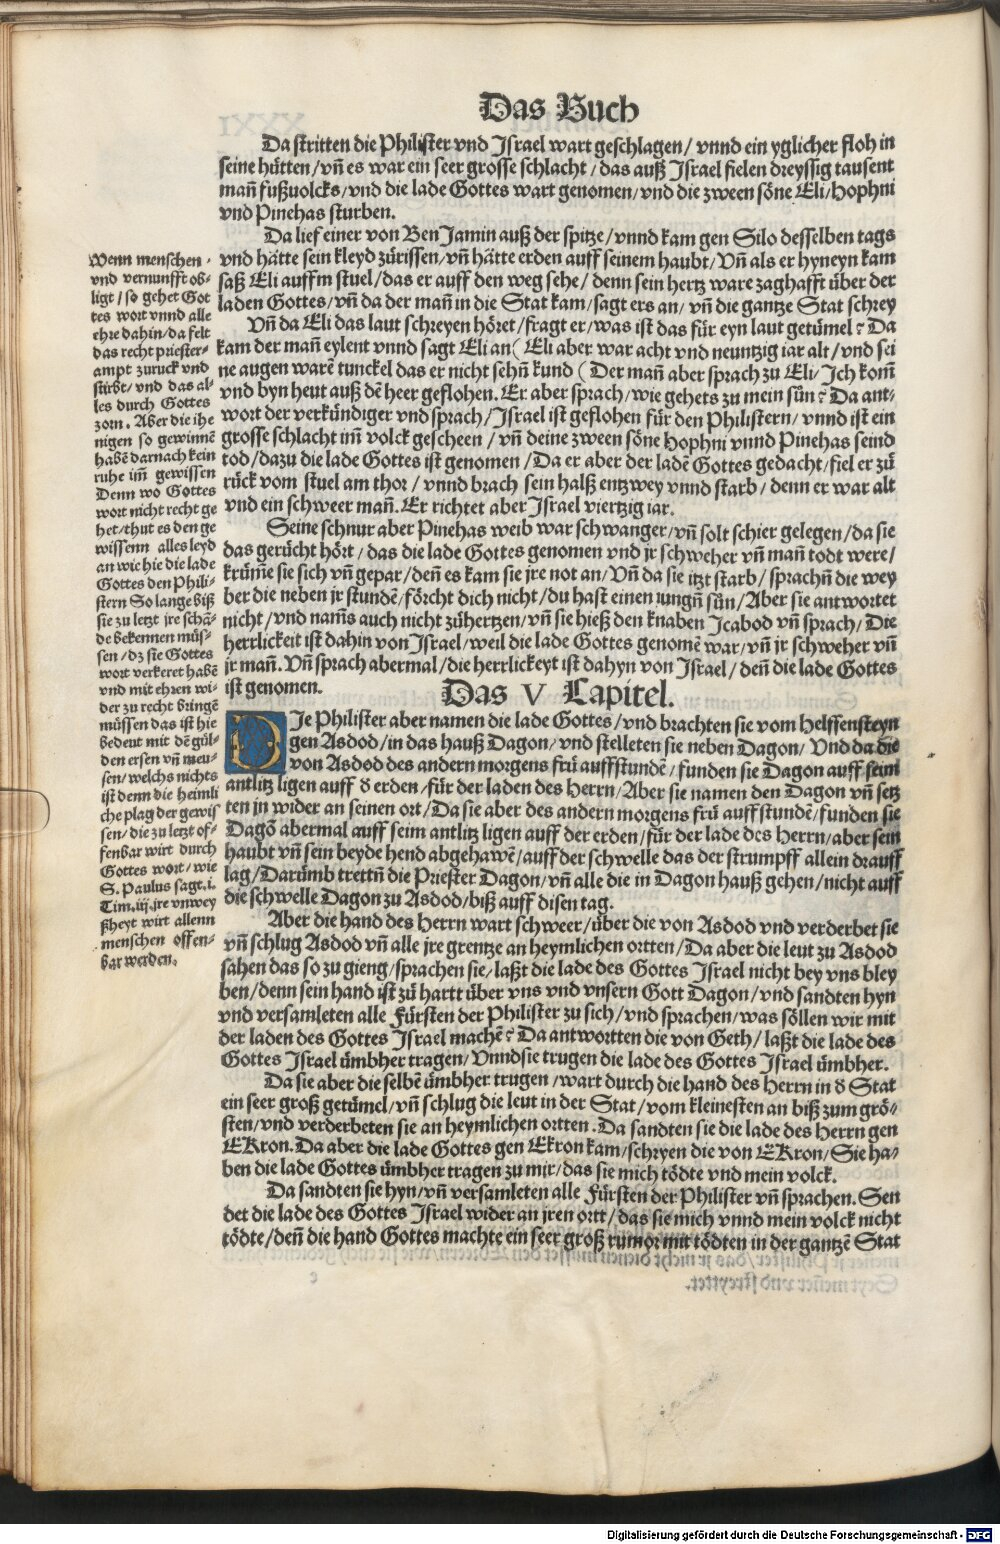 Das Buch
Da stritten die Philister vnd Israel wart geschlagen/ vnnd ein yglicher floh in
seine hütten/vñ es war ein seer grosse schlacht/das auß Israel fielen dreyssig tausent
mañ fußuolcks/vnd die lade Gottes wart genomen/vnd die zween söne Eli/Hophni
vnd Pinehas sturben.
Da lief einer von BenJamin auß der spitze/vnnd kam gen Silo desselben tags
vnd hätte sein kleyd zürissen/vñ hätte erden auff seinem haubt/Vñ als er hyneyn kam
saß Eli auffm stuel/das er auff den weg sehe/denn sein hertz ware zaghafft über der
laden Gottes/vñ da der mañ in die Stat kam/sagt ers an/vñ die gantze Stat schrey
Vñ da Eli das laut schreyen höret/fragt er/was ist das für eyn laut getümel? Da
kam der mañ eylent vnnd sagt Eli an( Eli aber war acht vnd neuntzig iar alt/vnd sei
ne augen warẽ tunckel das er nicht sehñ kund ( Der mañ aber sprach zu Eli/Ich kom̃
vnd byn heut auß dẽ heer geflohen. Er aber sprach/wie gehets zu mein sün? Da ant-
wort der verkündiger vnd sprach/Israel ist geflohen für den Philistern/vnnd ist ein
grosse schlacht im̃ volck gescheen/vñ deine zween söne Hophni vnnd Pinehas seind
tod/dazu die lade Gottes ist genomen/Da er aber der ladẽ Gottes gedacht/fiel er zů
rück vom stuel am thor/vnnd brach sein halß entzwey vnnd starb/denn er war alt
vnd ein schweer mañ. Er richtet aber Israel viertzig iar.
Seine schnur aber Pinehas weib war schwanger/vñ solt schier gelegen/da sie
das gerücht hört/das die lade Gottes genomen vnd jr schweher vñ mañ todt were/
krüm̃e sie sich vñ gepar/deñ es kam sie jre not an/Vñ da sie itzt starb/sprachñ die wey
ber die neben jr stundẽ/förcht dich nicht/du hast einen iungñ sün/Aber sie antwortet
nicht/vnd nam̃s auch nicht zühertzen/vñ sie hieß den knaben Icabod vñ sprach/Die
herrlickeit ist dahin von Israel/weil die lade Gottes genomẽ war/vñ jr schweher vñ
jr mañ. Vñ sprach abermal/die herrlickeyt ist dahyn von Israel/deñ die lade Gottes
ist genomen.
Wenn menschen-
vnd vernunfft ob-
ligt/so gehet Got
tes wort vnnd alle
ehre dahin/da felt
das recht priester-
ampt zuruck vnd
stirbt/vnd das al-
les durch Gottes
zorn. Aber die ihe
nigen so gewinnẽ
habẽ darnach kein
ruhe im̃ gewissen
Denn wo Gottes
wort nicht recht ge
het/thut es den ge
wissenn alles leyd
an wie hie die lade
Gottes den Phili-
stern So lange biß
sie zu letzt jre schã-
de bekennen müs-
sen/dz sie Gottes
wort verkeret habẽ
vnd mit ehren wi-
der zu recht bringẽ
müssen das ist hie
bedeut mit dẽ gül-
den ersen vñ meu-
sen/welchs nichts
ist denn die heimli
che plag der gewis
sen/die zu letzt of-
fenbar wirt durch
Gottes wort/wie
S. Paulus sagt.i.
Tim.iij.jre vnwey
ßheyt wirt allenn
menschen offen-
bar werden.
Das V Capitel.
DIe Philister aber namen die lade Gottes/vnd brachten sie vom Helffensteyn
gen Asdod/in das hauß Dagon/vnd stelleten sie neben Dagon/Vnd da die
von Asdod des andern morgens frů auffstundẽ/funden sie Dagon auff seim
antlitz ligen auff d erden/für der laden des Herrn/Aber sie namen den Dagon vñ setz
ten jn wider an seinen ort/Da sie aber des andern morgens frů auffstundẽ/funden sie
Dagõ abermal auff seim antlitz ligen auff der erden/für der lade des Herrn/aber sein
haubt vñ sein beyde hend abgehawẽ/auff der schwelle das der strumpff allein drauff
lag/Darümb trettñ die Priester Dagon/vñ alle die in Dagon hauß gehen/nicht auff
die schwelle Dagon zu Asdod/biß auff disen tag.
Aber die hand des Herrn wart schweer/über die von Asdod vnd verderbet sie
vñ schlug Asdod vñ alle jre grentze an heymlichen ortten/Da aber die leut zu Asdod
sahen das so zu gieng/sprachen sie/laßt die lade des Gottes Israel nicht bey vns bley
ben/denn sein hand ist zů hartt über vns vnd vnsern Gott Dagon/vnd sandten hyn
vnd versamleten alle Fürsten der Philister zu sich/vnd sprachen/was söllen wir mit
der laden des Gottes Israel machẽ? Da antwortten die von Geth/laßt die lade des
Gottes Israel ümbher tragen/Vnndsie trugen die lade des Gottes Israel ümbher.
Da sie aber die selbẽ ümbher trugen/wart durch die hand des Herrn in d Stat
ein seer groß getümel/vñ schlug die leut in der Stat/vom kleinesten an biß zum grö-
sten/vnd verderbeten sie an heymlichen ortten. Da sandten sie die lade des Herrn gen
EKron. Da aber die lade Gottes gen Ekron kam/schryen die von EKron/Sie ha-
ben die lade Gottes ümbher tragen zu mir/das sie mich tödte vnd mein volck.
Da sandten sie hyn/vñ versamleten alle Fürsten der Philister vñ sprachen. Sen
det die lade des Gottes Israel wider an jren ortt/das sie mich vnnd mein volck nicht
tödte/deñ die hand Gottes machte ein seer groß rumor mit tödten in der gantzẽ Stat
Digitalisierung gefördert durch die Deutsche Forschungsgemeinschaft - DFG